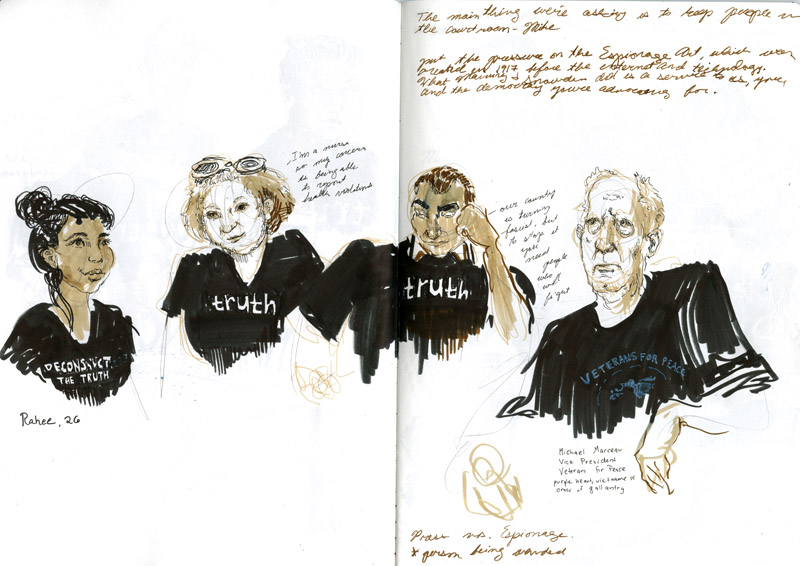 The main thing we're asking is to keep people in
the courtroom - Mike
put the pressure on the Espionage Act, which was
created in 1917 before the internet and technology.
What Manning & Snowden did is a service to us, you,
and the democracy you're advocating for.
I'm a nurse
so my concern
is being able
to report
health violations
our country
is turning
fascist, but
to stop it
you
need
people
who
won't
forget
truth
truth
DECONSTRUCT
THE TRUTH
VETERANS FOR PEACE
Rahee, 26
Michael Marceau
Vice President
Veterans for Peace
purple heart, vietnamese
cross of gallantry
Press vs. Espionage.
* person being sounded